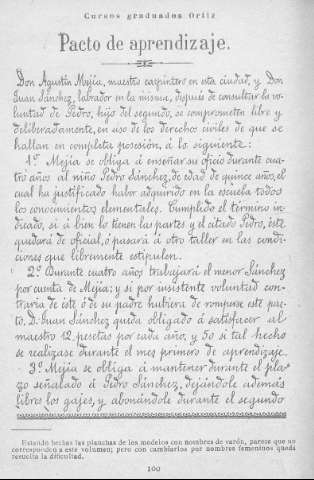 Cursos graduados Ortiz
Pacto de aprendizaje.
Don Agustín Mejía, maestro carpintero en esta ciudad, y Don
Juan Sánchez, labrador en la misma, después de consultar la vo-
luntad de Pedro, hijo del segundo, se comprometen libre y
deliberadamente, en uso de los derechos civiles de que se
hallan en completa posesión, á lo siguiente:
1.º Mejía se obliga á enseñar su oficio durante cua-
tro años al niño Pedro Sánchez, de edad de quince años, el
cual ha justificado haber adquirido en la escuela todos
los conocimientos elementales. Cumplido el término in-
dicado, si á bien lo tienen las partes y el citado Pedro, éste
quedará de oficial, ó pasará á otro taller en las condi-
ciones que libremente estipulen.
2.º Durante cuatro años trabajará el menor Sánchez
por cuenta de Mejía; y si por insistente voluntad con-
traria de éste ó de su padre hubiera de romperse este pac-
to, D. Juan Sánchez queda obligado á satisfacer al
maestro 12 pesetas por cada año, y 50 si tal hecho
se realizase durante el mes primero de aprendizaje.
3.º Mejía se obliga á mantener durante el pla-
zo señalado á Pedro Sánchez, dejándole además
libres los gajes, y abonándole durante el segundo
Estando hechas las planchas de los modelos con nombres de varón, parece que no
corresponden á este volumen; pero con cambiarlos por nombres femeninos queda
resuelta la dificultad.
100